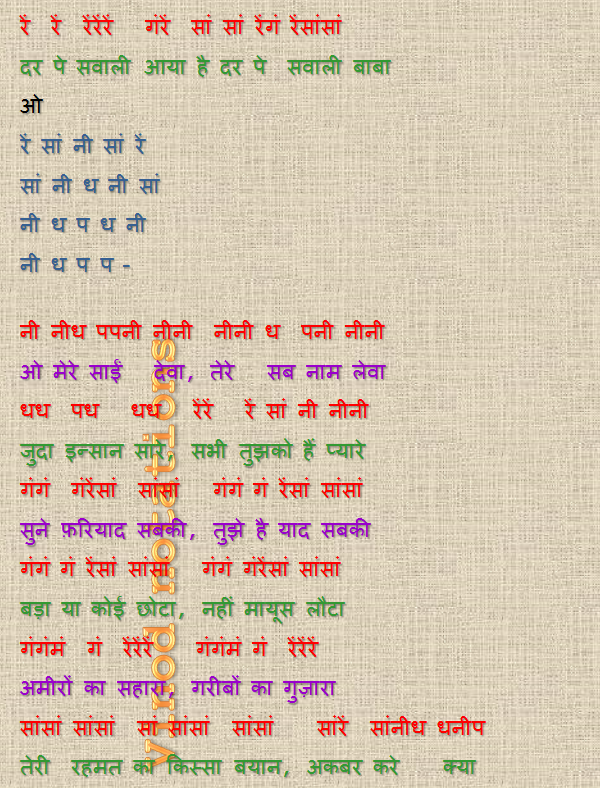 रें रें रेंरेंरें गंरें सां सां रेंगं रेंसांसां
दर पे सवाली आया है दर पे सवाली बाबा
ओ
रें सां नी सां रें
सां नी ध नी सां
नी ध प ध नी
नी ध प प -
नी नीध पपनी नीनी नीनी ध पनी नीनी
ओ मेरे साईं देवा, तेरे सब नाम लेवा
धध पध धध रेंरें रें सां नी नीनी
जुदा इन्सान सारे, सभी तुझको हैं प्यारे
गंगं गंरेंसां सांसां गंगं गं रेंसां सांसां
सुने फ़रियाद सबकी, तुझे है याद सबकी
गंगं गं रेंसां सांसां गंगं गंरेंसां सांसां
बड़ा या कोई छोटा, नहीं मायूस लौटा
गंगंमं गं रेंरेंरें गंगंमं गं रेंरेंरें
अमीरों का सहारा, गरीबों का गुज़ारा
सांसां सांसां सां सांसां सांसां सांरें सांनीध धनीप
तेरी रहमत का किस्सा बयान, अकबर करे क्या
vinod notations